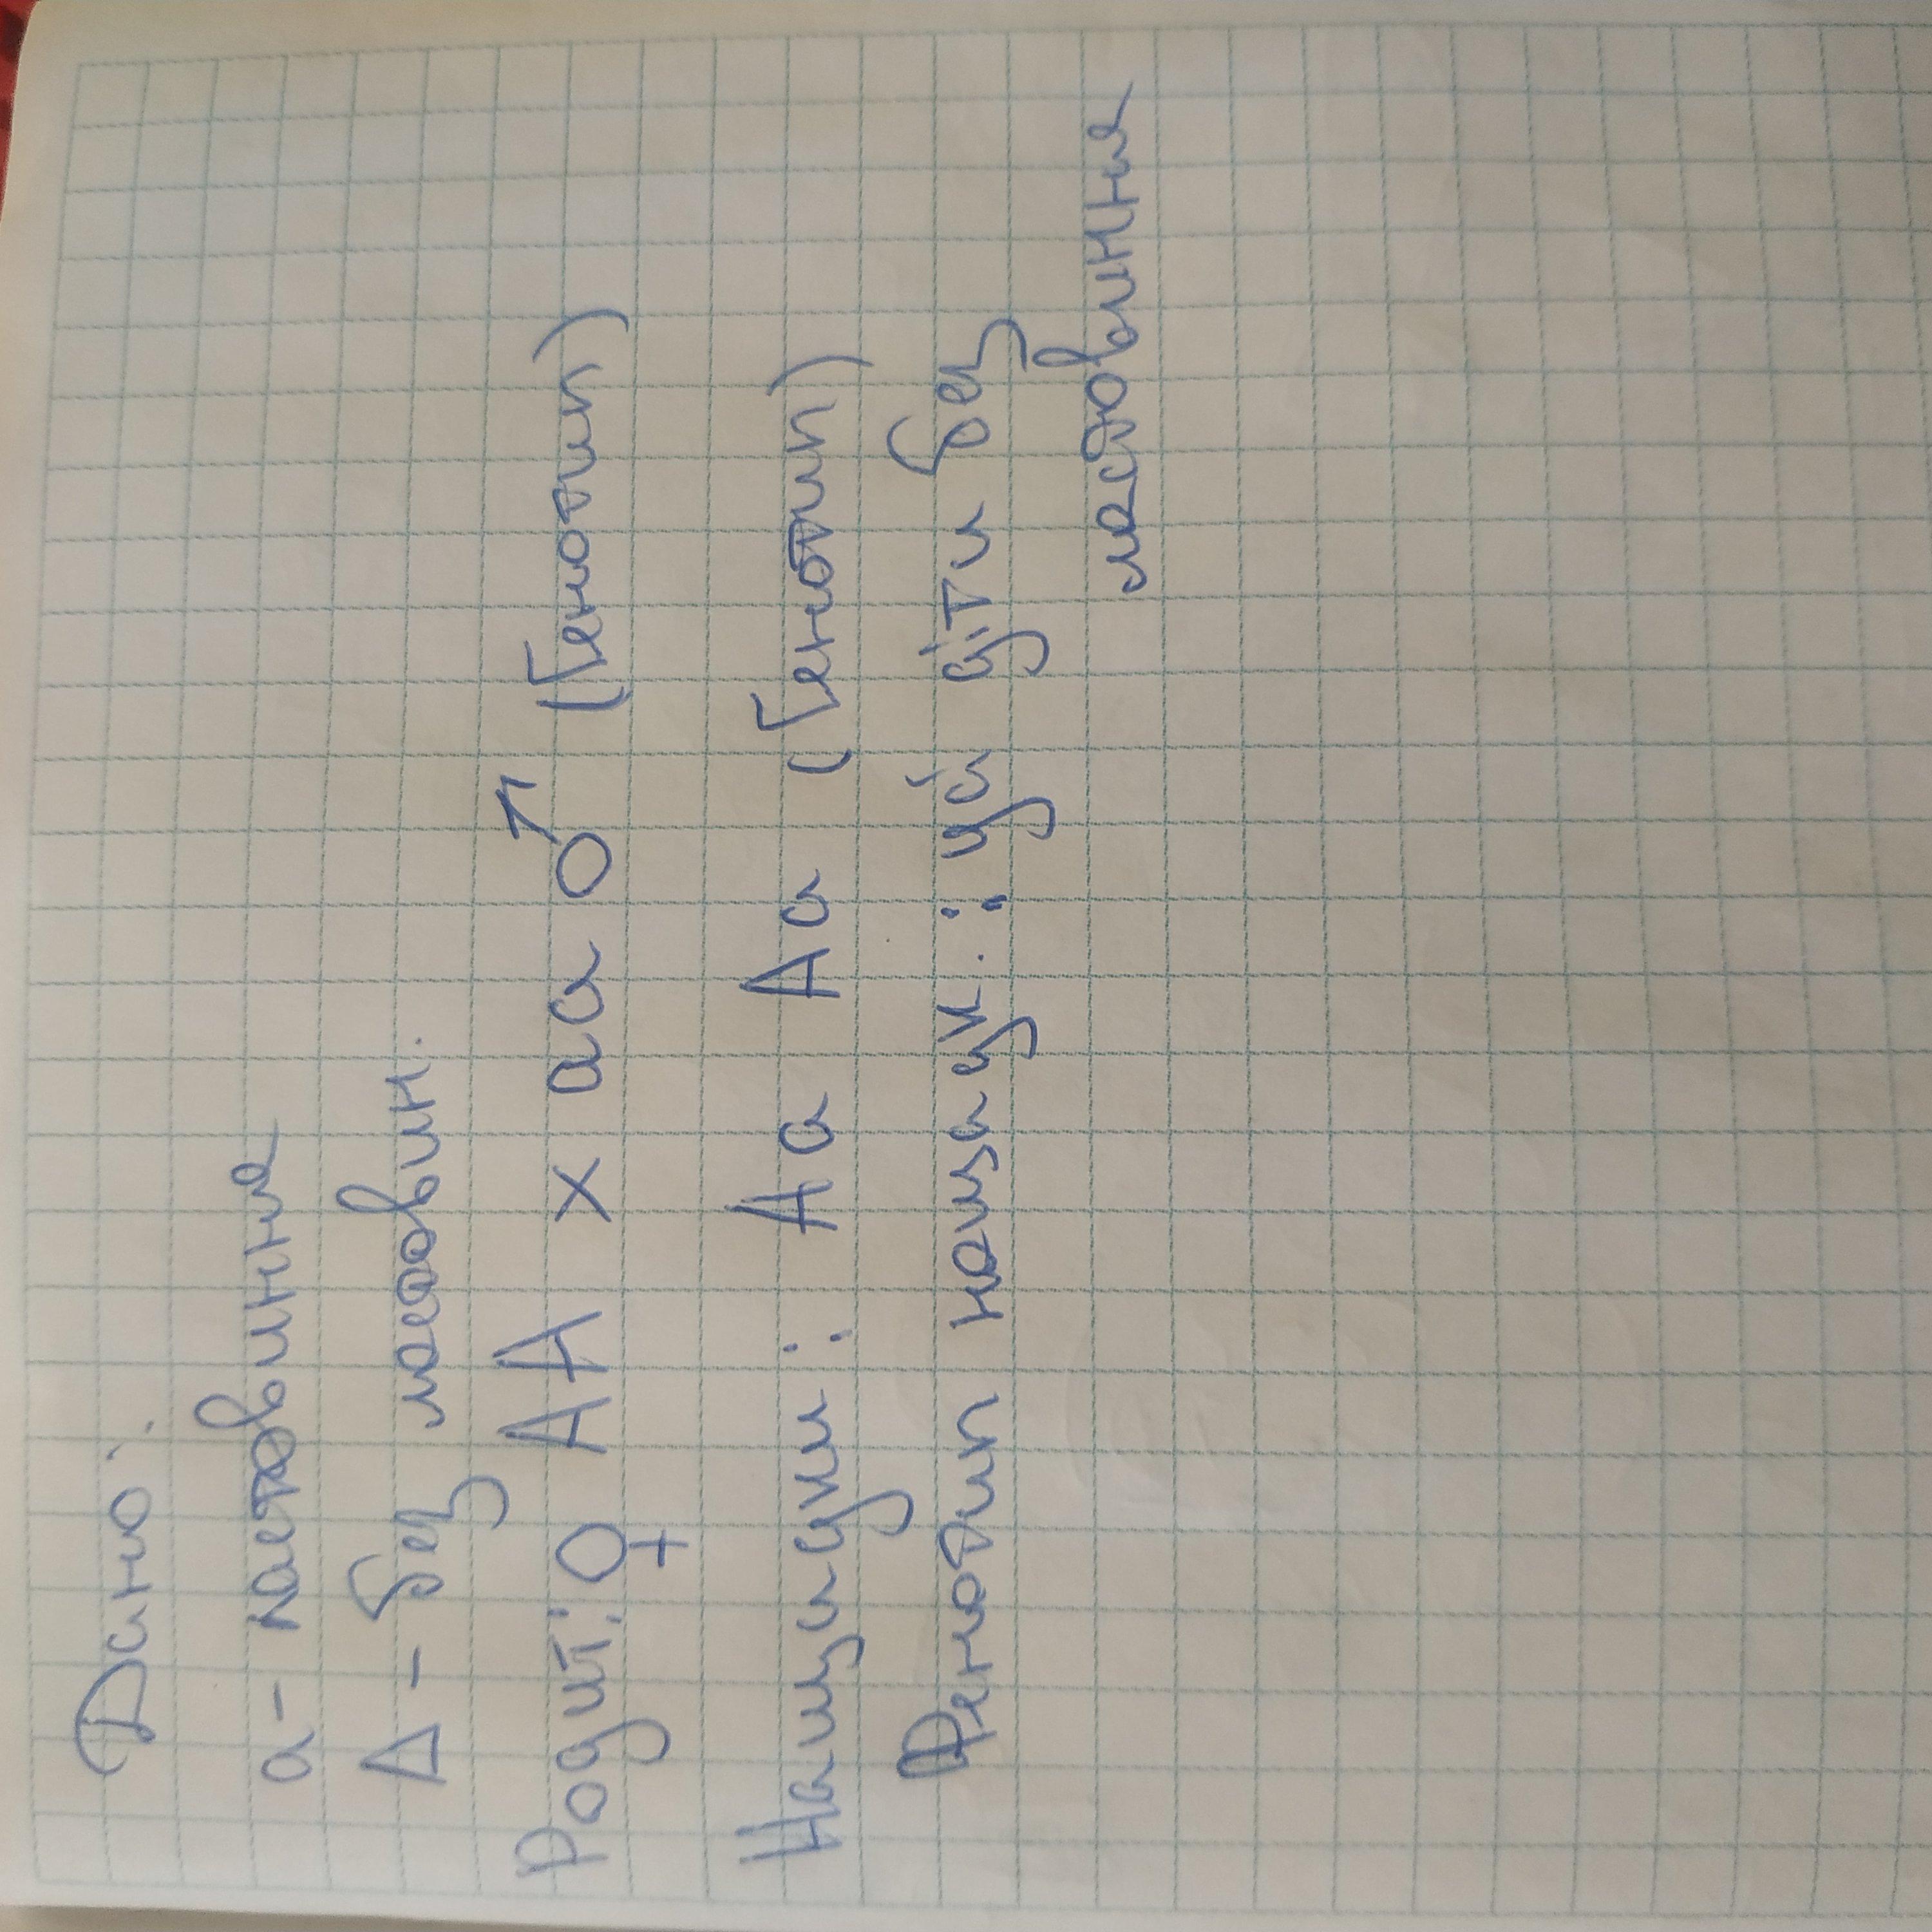 Дано:
а - ластовиння
А - без ластовин.
Родит: ♀ АА х аа ♂ (Генотип)
Нащадки: Аа Аа (Генотип)
Фенотип нащадк.: усі діти без
ластовиння